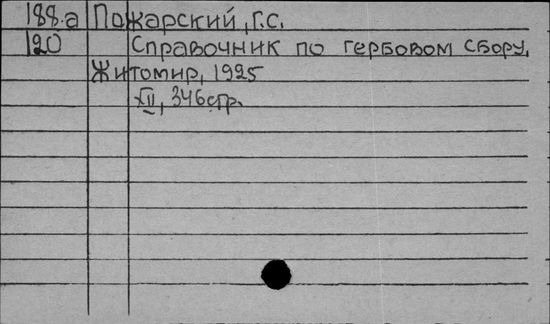 188.a Пожарский, Г.С.
120 Справочник по гербовом сбору,
Житомир, 1925
XII, 346стр.